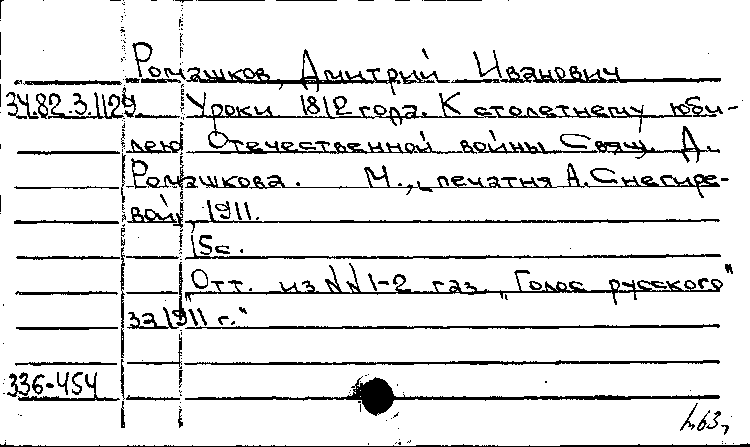 Ромашков, Дмитрий Иванович
34.82.3.1129. Уроки 1812 года. К столетнему юби-
лею Отечественной войны Свящ. Д.
Ромашкова. М., печатня А. Снегире-
вой, 1911.
15с.
"Отт. из NN 1-2 газ. „Голос русского"
за 1911 г."
336-454